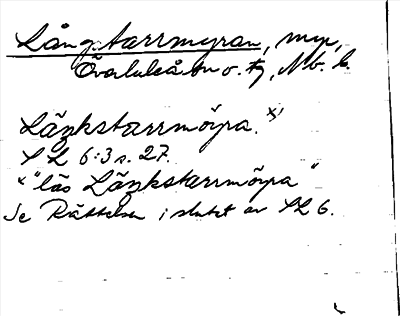 Långstarrmyran, myr,
Överluleå sn o. tg, Nb. l.
Längkstarrmöyra. x)
SL 6:3 s. 27.
x "läs Längkstarrmöyra"
Se Rättelser i slutet av SL 6.